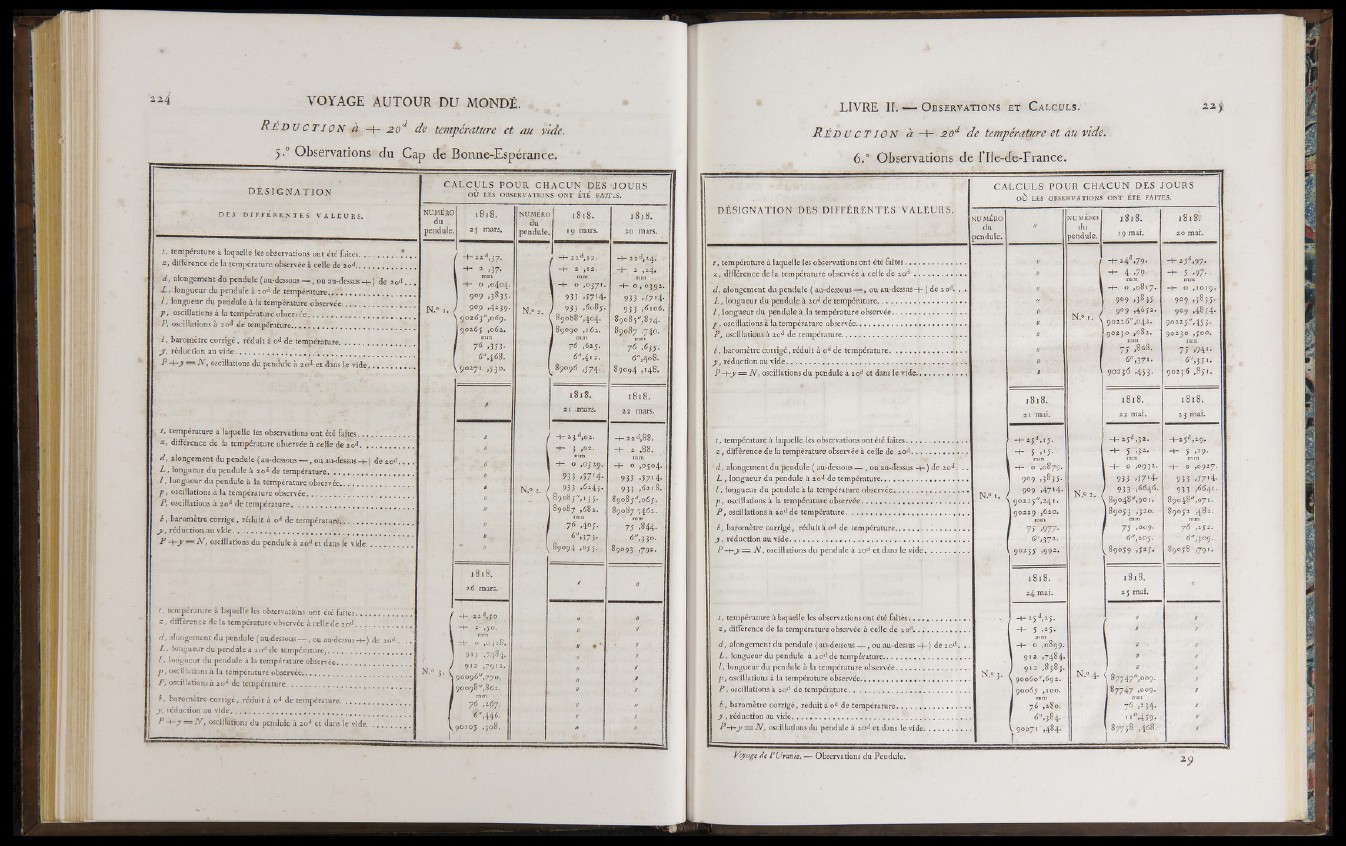 224 VOYAGE AUTOUR DU MONDE.
RÉDUCTION à + 20d de température et au vide.
5.° Observations du Cap de Bonne-Espérance.
DÉSIGNATION
DES DIFFÉRENTES VALEURS.
CALCULS POUR CHACUN DES JOURS
OÙ LES OBSERVATIONS ONT ÉTÉ FAITES.
NUMÉRO du pendule. 1818. 25 mars. NUMÉRO du pendule. 1818. 19 mars. 1818. 20 mars.
N.° 1. N.° 2.
t, température à laquelle les observations ont été faites. +22d,37. +22d,12. +22d,24.
z, différence de la température observée à celle de 20d. + 2 ,37. + 2 ,12. + 2 ,24.
mm mm mm
d, alongement du pendule (au-dessous —, ou au-dessus +) de 20d... + 0 ,0404. + 0 ,0371. + 0 ,0392.
L, longueur du pendule à 20d de température. 909 ,3835. 933 ,5714. 933 ,5714.
l, longueur du pendule à la température observée. 909 ,4239. 933 ,6085. 933 ,6106.
p, oscillations à la température observée. 90263",069. 89088",404. 89085",874.
P, oscillations à 20d de température. 90265 ,062. 89090 ,162. 89087 ,740.
mm mm mm
b, baromètre corrigé, réduit à 0d de température. 76 ,353. 76 ,625. 76 ,635.
y, réduction au vide. 6",468. 6",412. 6",408.
P+y=N, oscillations du pendule à 20d et dans le vide. 90271 ,530. 89096 ,574. 89094 ,148.
" 1818. 21 mars. 1818. 22 mars.
N.° 2.
t, température à laquelle les observations ont été faites. " +23d,02. +22d,88.
z, différence de la température observée à celle de 20d. " + 3 ,02. + 2 ,88.
mm mm
d, alongement du pendule (au-dessous —, ou au-dessus +) de 20d... " + 0 ,0529. + 0 ,0504.
L, longueur du pendule à 20d de température. " 933 ,5714. 933 ,5714.
l, longueur du pendule à la température observée. " 933 ,6243. 933 ,6218.
p, oscillations à la température observée. " 89085",135. 89085",065.
P, oscillations à 20d de température. " 89087 ,682. 89087 ,462.
mm mm
b, baromètre corrigé, réduit à 0d de température. " 76 ,405. 75 ,844.
y, réduction au vide. " 6",373. 6",330.
P+y=N, oscillations du pendule à 20d et dans le vide. " 89094 ,055. 89093 ,792.
1818. 26 mars. " "
N.° 3.
t, température à laquelle les observations ont été faites. +22d,50 " "
z, différence de la température observée à celle de 20d. + 2 ,50. " "
mm
d, alongement du pendule (au-dessous —, ou au-dessus +) de 20d... + 0 ,0428. " "
L, longueur du pendule à 20d de température. 912 ,7484. " "
l, longueur du pendule à la température observée. 912 ,7912. " "
p, oscillations à la température observée. 90096",770. " "
P, oscillations à 20d de température. 90098",862. " "
mm
b, baromètre corrigé, réduit à 0d de température. 76 ,267. " "
y, réduction au vide. 6",446. " "
P+y=N, oscillations du pendule à 20d et dans le vide. 90105 ,308. " "
LIVRE II. — OBSERVATIONS ET CALCULS. 225
RÉDUCTION à + 20d de température et au vide.
6.° Observations de l'Ile-de-France.
DÉSIGNATION DES DIFFÉRENTES VALEURS.
CALCULS POUR CHACUN DES JOURS
OÙ LES OBSERVATIONS ONT ÉTÉ FAITES.
NUMÉRO du pendule. " NUMÉRO du pendule. 1818. 19 mai. 1818. 20 mai.
N.° 1.
t, température à laquelle les observations ont été faites. " +24d,79. +25d,97.
z, différence de la température observée à celle de 20d. " + 4 ,79. + 5 ,97.
mm mm
d, alongement du pendule (au-dessous —, ou au-dessus +) de 20d... " + 0 ,0817. + 0 ,1019.
L, longueur du pendule à 20d de température. " 909 ,3835. 909 ,3835.
l, longueur du pendule à la température observée. " 909 ,4652. 909 ,4854.
p, oscillations à la température observée. " 90226",042. 90225",453.
P, oscillations à 20d de température. " 90230 ,082. 90230 ,500.
mm mm
b, baromètre corrigé, réduit à 0d de température. " 75 ,868. 75 ,941.
y, réduction au vide. " 6",371. 6",351.
P+y=N, oscillations du pendule à 20d et dans le vide. " 90236 ,453. 90236 ,851.
1818. 21 mai. 1818. 22 mai. 1818. 23 mai.
N.° 1. N.° 2.
t, température à laquelle les observations ont été faites. +25d,15. +25d,32. +25d,29.
z, différence de la température observée à celle de 20d. + 5 ,15. + 5 ,32. + 5 ,29.
mm mm mm
d, alongement du pendule (au-dessous —, ou au-dessus +) de 20d... + 0 ,0879. + 0 ,0932. + 0 ,0927.
L, longueur du pendule à 20d de température. 909 ,3835. 933 ,5714. 933 ,5714.
l, longueur du pendule à la température observée. 909 ,4714. 933 ,6646. 933 ,6641.
p, oscillations à la température observée. 90225",241. 89048",901. 89048",071.
P, oscillations à 20d de température. 90229 ,620. 89053 ,320. 89052 ,482.
mm mm mm
b, baromètre corrigé, réduit à 0d de température. 75 ,977. 75 ,009. 76 ,252.
y, réduction au vide. 6",372. 6",205. 6",309.
P+y=N, oscillations du pendule à 20d et dans le vide. 90235 ,992. 89059 ,525. 89058 ,791.
1818. 24 mai. 1818. 25 mai. "
N.° 3. N.° 4.
t, température à laquelle les observations ont été faites. +25d,25. " "
z, différence de la température observée à celle de 20d. + 5 ,25. " "
mm
d, alongement du pendule (au-dessous —, ou au-dessus +) de 20d... + 0 ,0899. " "
L, longueur du pendule à 20d de température. 912 ,7484. " "
l, longueur du pendule à la température observée. 912 ,8383. " "
p, oscillations à la température observée. 90060",692. 87747",009. "
P, oscillations à 20d de température. 90065 ,100. 87747 ,009. "
mm mm
b, baromètre corrigé, réduit à 0d de température. 76 ,280. 76 ,234. "
y, réduction au vide. 6",384. 11",459. "
P+y=N, oscillations du pendule à 20d et dans le vide. 90071 ,484. 87758 ,468. "
Voyage de l'Uranie. — Observations du Pendule. 29